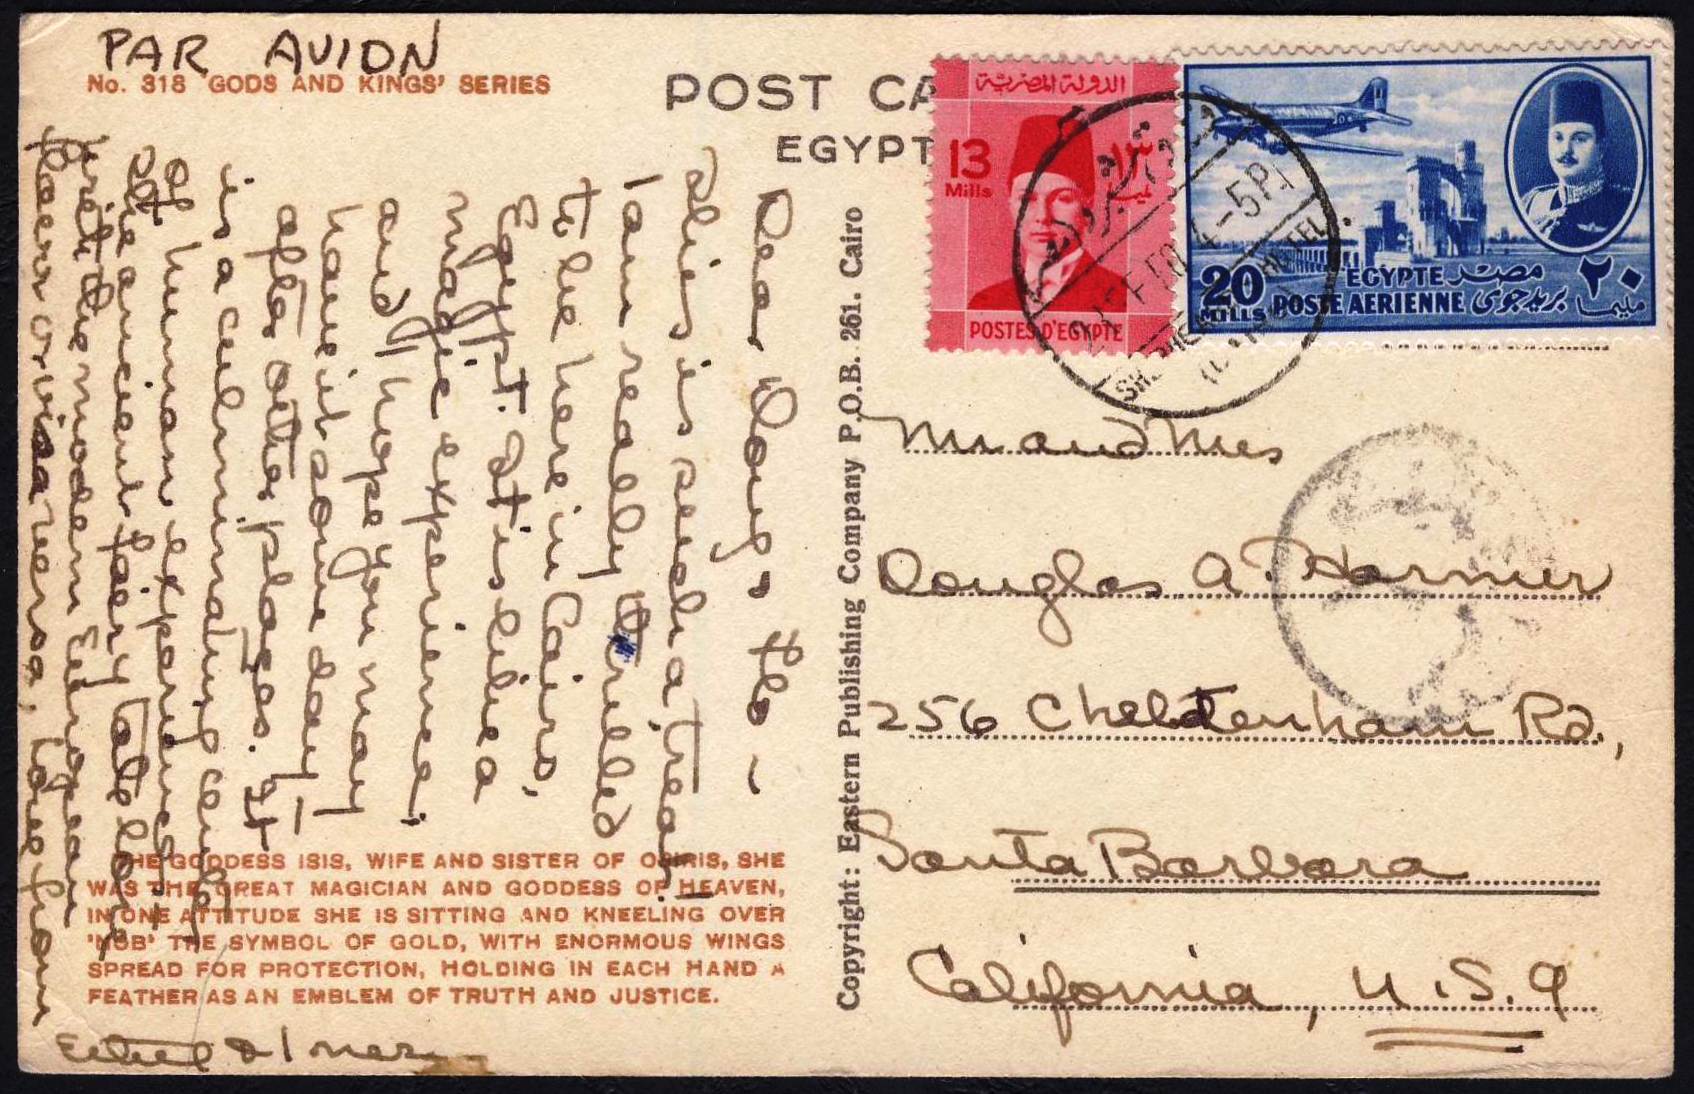 PAR AVION
No. 318 'GODS AND KINGS' SERIES
POST CA
EGYPT
الدولة المصرية
13
Mills
POSTES D'EGYPTE
20
MILLS
EGYPTE مصر
POSTE AERIENNE بريد جوى
٢٠
مليما
-5P.
Dear Doug & Flo –
This is such a treat!
I am really thrilled
to be here in Cairo,
Egypt. It is like a
magic experience
and I hope you may
have it some day
after other places. It
is a culminating
of human experience
the ancient fairy tale
with the modern European
flavor or visa versa, Love from
Ethel & Inez
THE GODDESS ISIS, WIFE AND SISTER OF OSIRIS, SHE
WAS THE GREAT MAGICIAN AND GODDESS OF HEAVEN,
IN ONE ATTITUDE SHE IS SITTING AND KNEELING OVER
'NUB' THE SYMBOL OF GOLD, WITH ENORMOUS WINGS
SPREAD FOR PROTECTION, HOLDING IN EACH HAND A
FEATHER AS AN EMBLEM OF TRUTH AND JUSTICE.
Copyright: Eastern Publishing Company P.O.B. 261. Cairo
Mr and Mrs
Douglas A. Harmer
256 Cheltenham Rd.,
Santa Barbara
California, U.S.A